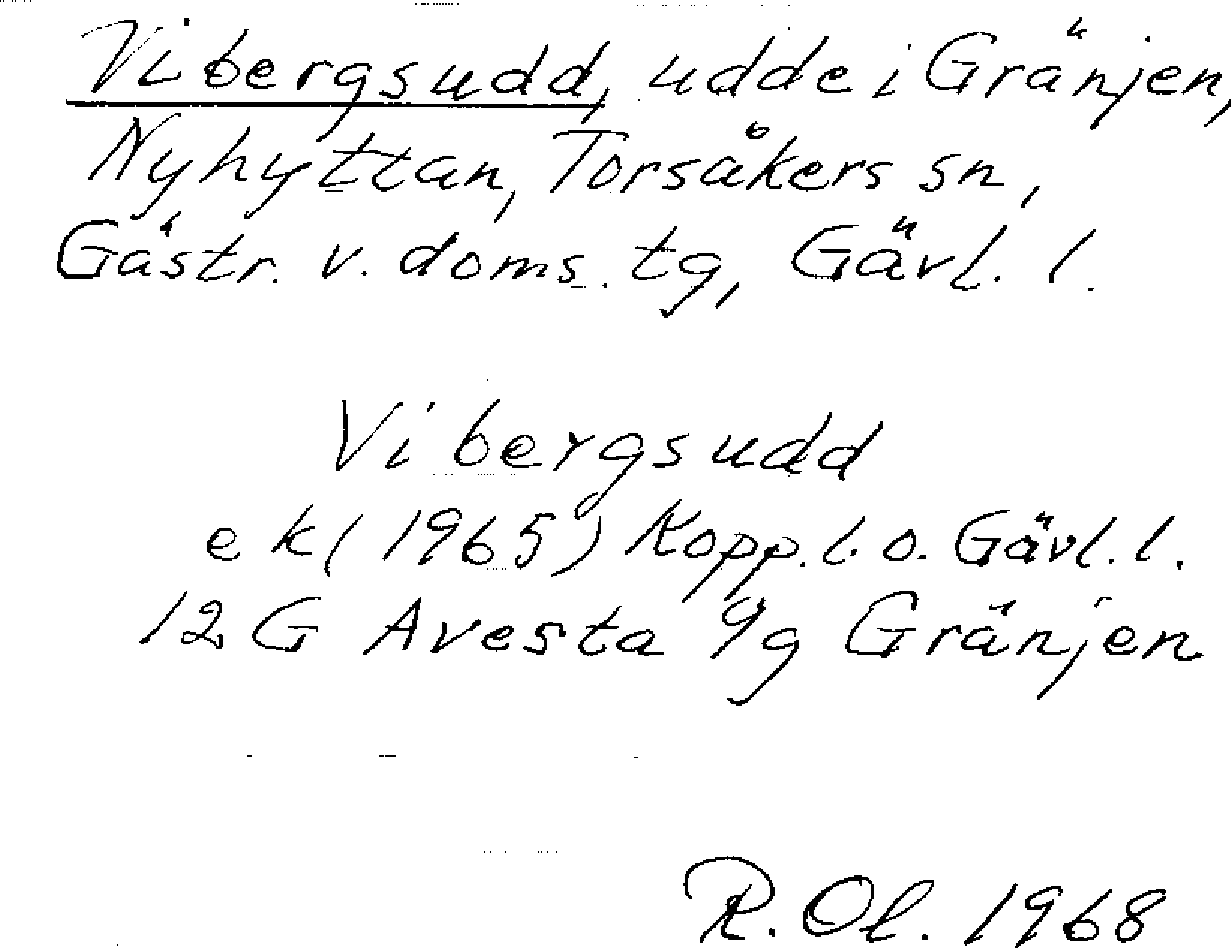 Vibergsudd, udde i Gränjen,
Nyhyttan, Torsåkers sn,
Gästr. v. doms. tg, Gävl. l.
Vibergsudd
ek (1965) Kopp. l. o. Gävl. l.
12 G Avesta 9g Gränjen
R. Ol. 1968